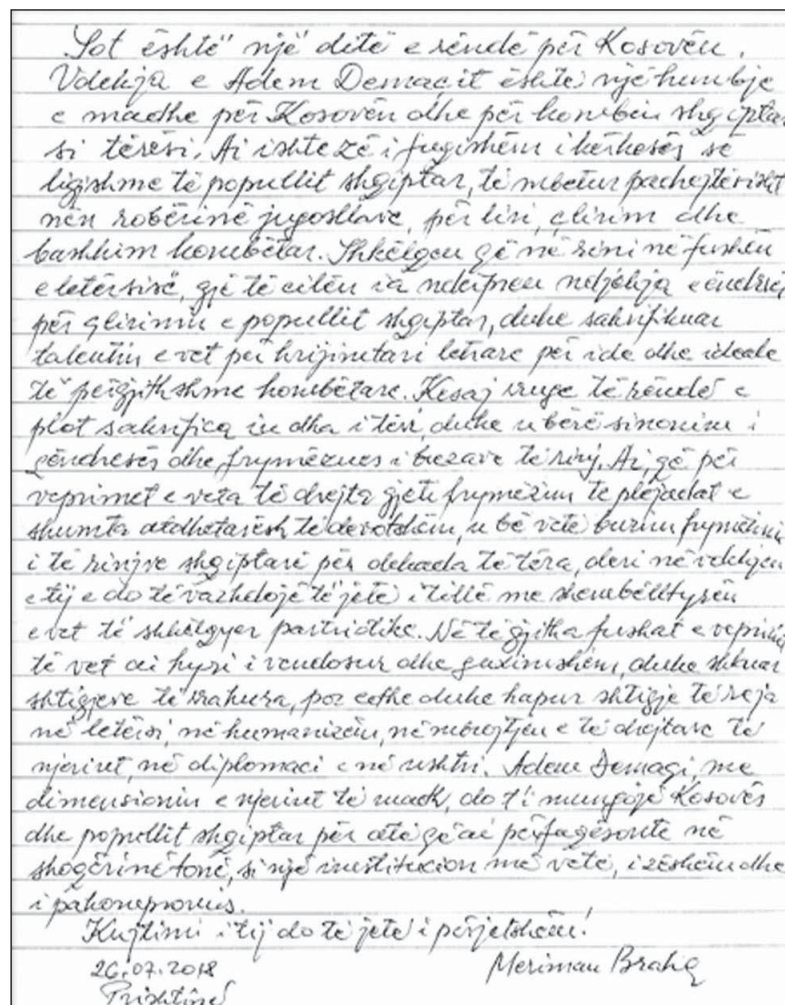 Sot është një ditë e rëndë për Kosovën.
Vdekja e Adem Demaçit është një humbje
e madhe për Kosovën dhe për kombin shqiptar
si tërësi. Ai ishte zë i fuqishëm i kërkesës së
ligjshme të popullit shqiptar, të mbetur padrejtësisht
nën robërinë jugosllave, për liri, çlirim dhe
bashkim kombëtar. Shkëlqeu që në rini në fushën
e letërsisë, gjë të cilën ia ndërpreu ndjekja e ëndrrës
për çlirimin e popullit shqiptar, duke sakrifikuar
talentin e vet për krijimtari letrare për ide dhe ideale
të përgjithshme kombëtare. Kësaj rruge të rëndë e
plot sakrifica iu dha i tëri, duke u bërë sinonim i
qëndresës dhe frymëzues i brezave të rinj. Ai, që për
veprimet e veta të drejta gjeti frymëzim te plejadat e
shumta atdhetarësh të devotshëm, u bë vetë burim frymëzimi
i të rinjve shqiptarë për dekada të tëra, deri në vdekjen
e tij e do të vazhdojë të jetë i tillë me shembëlltyrën
e vet të shkëlqyer patriotike. Në të gjitha fushat e veprimit
të vet ai hyri i vendosur dhe guximshëm, duke shkuar
shtigjeve të rrahura, por edhe duke hapur shtigje të reja
në letërsi, në humanizëm, në mbrojtjen e të drejtave të
njeriut, në diplomaci e në ushtri. Adem Demaçi, me
dimensionin e njeriut të madh, do t'i mungojë Kosovës
dhe popullit shqiptar për atë që ai përfaqësonte në
shoqërinë tonë, si një institucion më vete, i zëshëm dhe
i pakompromis.
Kujtimi i tij do të jetë i përjetshëm!
26.07.2018
Meriman Braha
Prishtinë